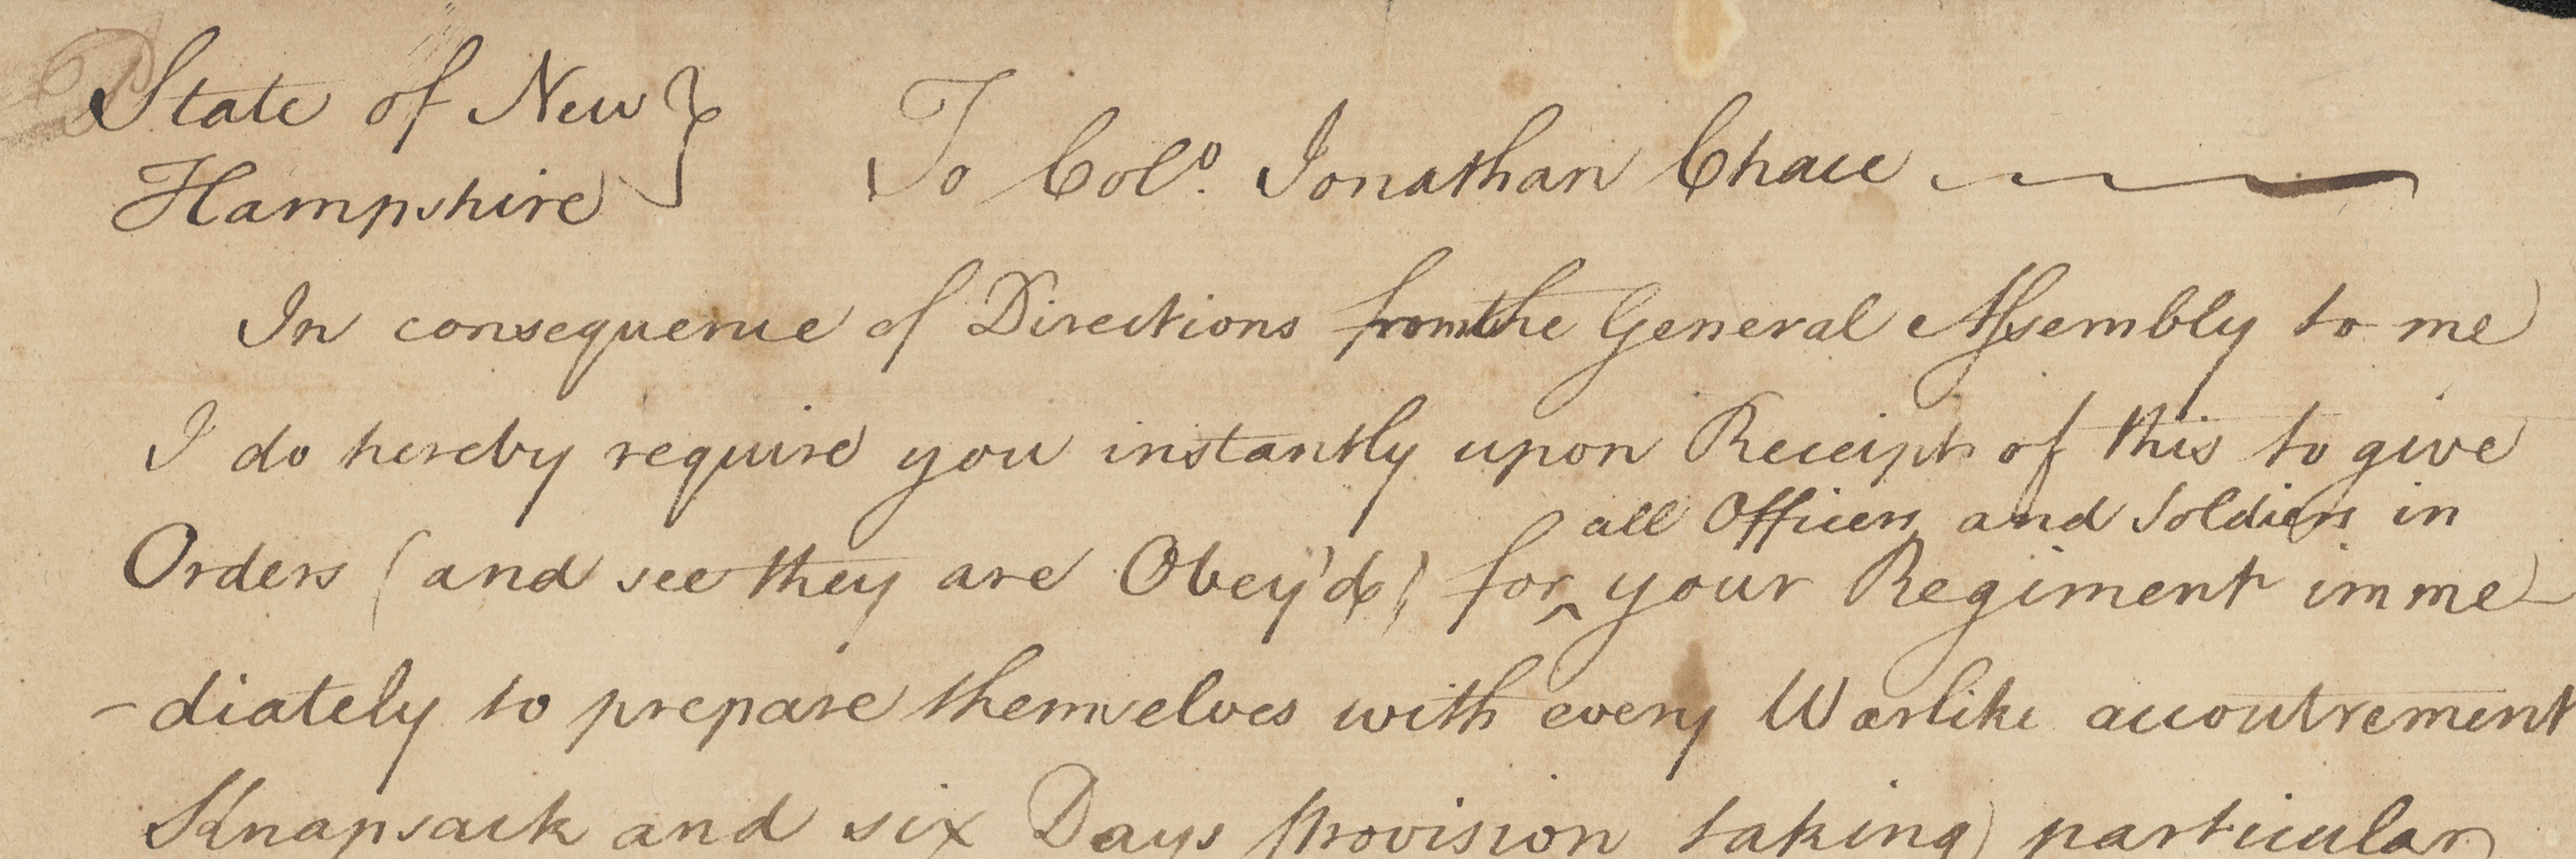 State of New } To Colo. Jonathan Chace
Hampshire
In consequence of Directions from the General Assembly to me
I do hereby require you instantly upon Receipt of this to give
all Officers and Soldiers in
Orders (and see they are Obey'd) for ^ your Regiment imme-
-diately to prepare themselves with every Warlike accoutrement
Knapsack and six Days Provision taking particular